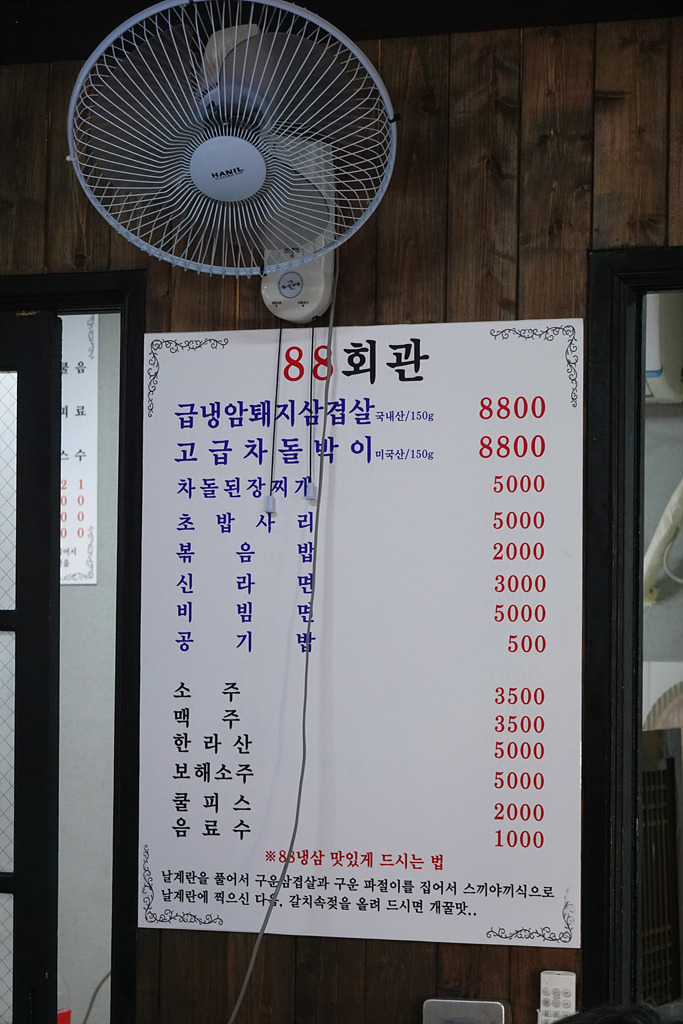 HANIL
88회관
급냉암퇘지삼겹살국내산/150g 8800
고급차돌박이미국산/150g 8800
차돌된장찌개 5000
초밥사리 5000
볶음밥 2000
신라면 3000
비빔면 5000
공기밥 500
소주 3500
맥주 3500
한라산 5000
보해소주 5000
쿨피스 2000
음료수 1000
※88냉삼 맛있게 드시는 법
날계란을 풀어서 구운삼겹살과 구운 파절이를 집어서 스끼야끼식으로
날계란에 찍으신 다음, 갈치속젖을 올려 드시면 개꿀맛..
음
피 료
스 수
2 1
0 0
0 0
0 0